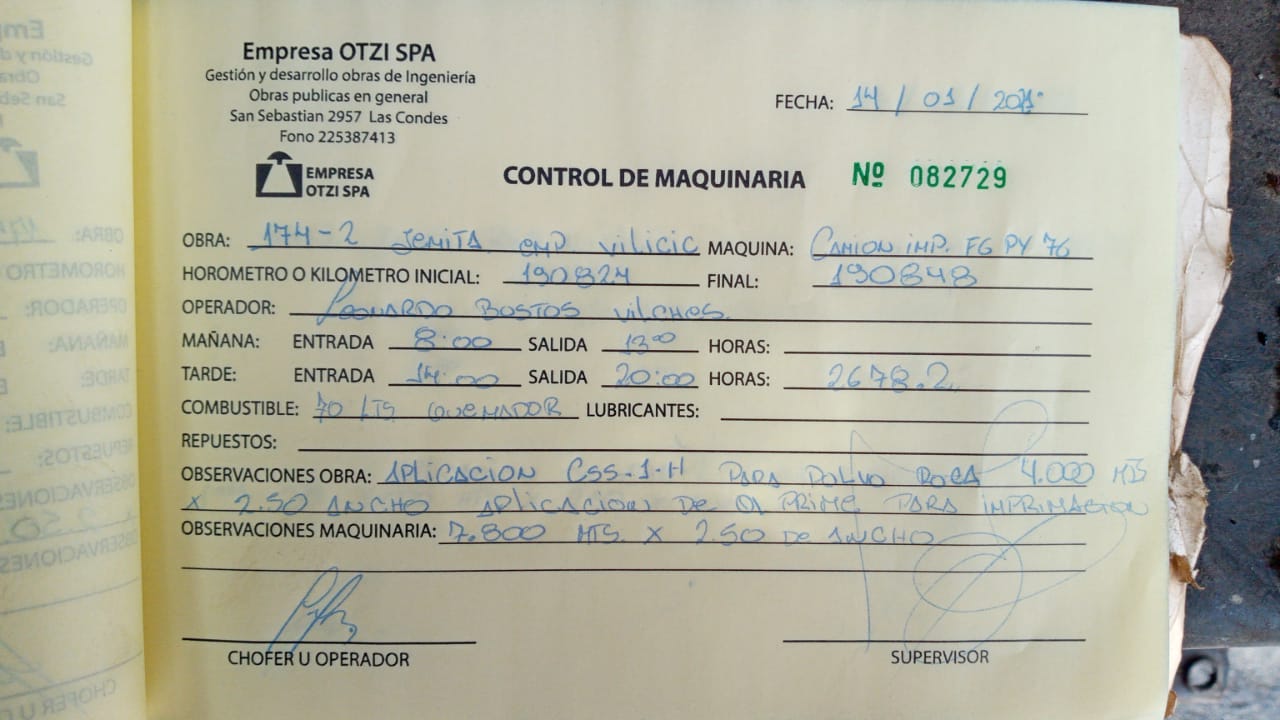 Empresa OTZI SPA
Gestión y desarrollo obras de Ingeniería
Obras publicas en general
San Sebastian 2957 Las Condes
Fono 225387413
FECHA: 14 / 01 /
EMPRESA
OTZI SPA
CONTROL DE MAQUINARIA Nº 082729
OBRA: 174-2 JEMITA EMP VILICIC MAQUINA: CAMION IMP. FG PY 76
HOROMETRO O KILOMETRO INICIAL: 190824 FINAL: 190848
OPERADOR: LEONARDO BUSTOS VILCHES
MAÑANA: ENTRADA 8:00 SALIDA 13:00 HORAS:
TARDE: ENTRADA 14:00 SALIDA 20:00 HORAS: 2678.2
COMBUSTIBLE: 70 LTS QUEMADOR LUBRICANTES:
REPUESTOS:
OBSERVACIONES OBRA: APLICACION CSS-1-H PARA POLVO ROCA 4.000 MTS
X 2.50 ANCHO APLICACION DE PRIME PARA IMPRIMACION
OBSERVACIONES MAQUINARIA: 7.800 MTS. X 2.50 DE ANCHO
CHOFER U OPERADOR
SUPERVISOR